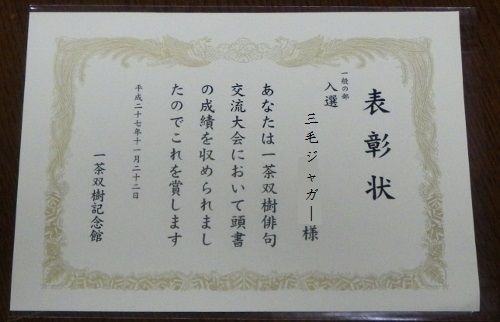 表彰状
一般の部
入選
三毛ジャガー様
あなたは一茶双樹俳句
交流大会において頭書
の成績を収められまし
たのでこれを賞します
平成二十七年十一月二十二日
一茶双樹記念館